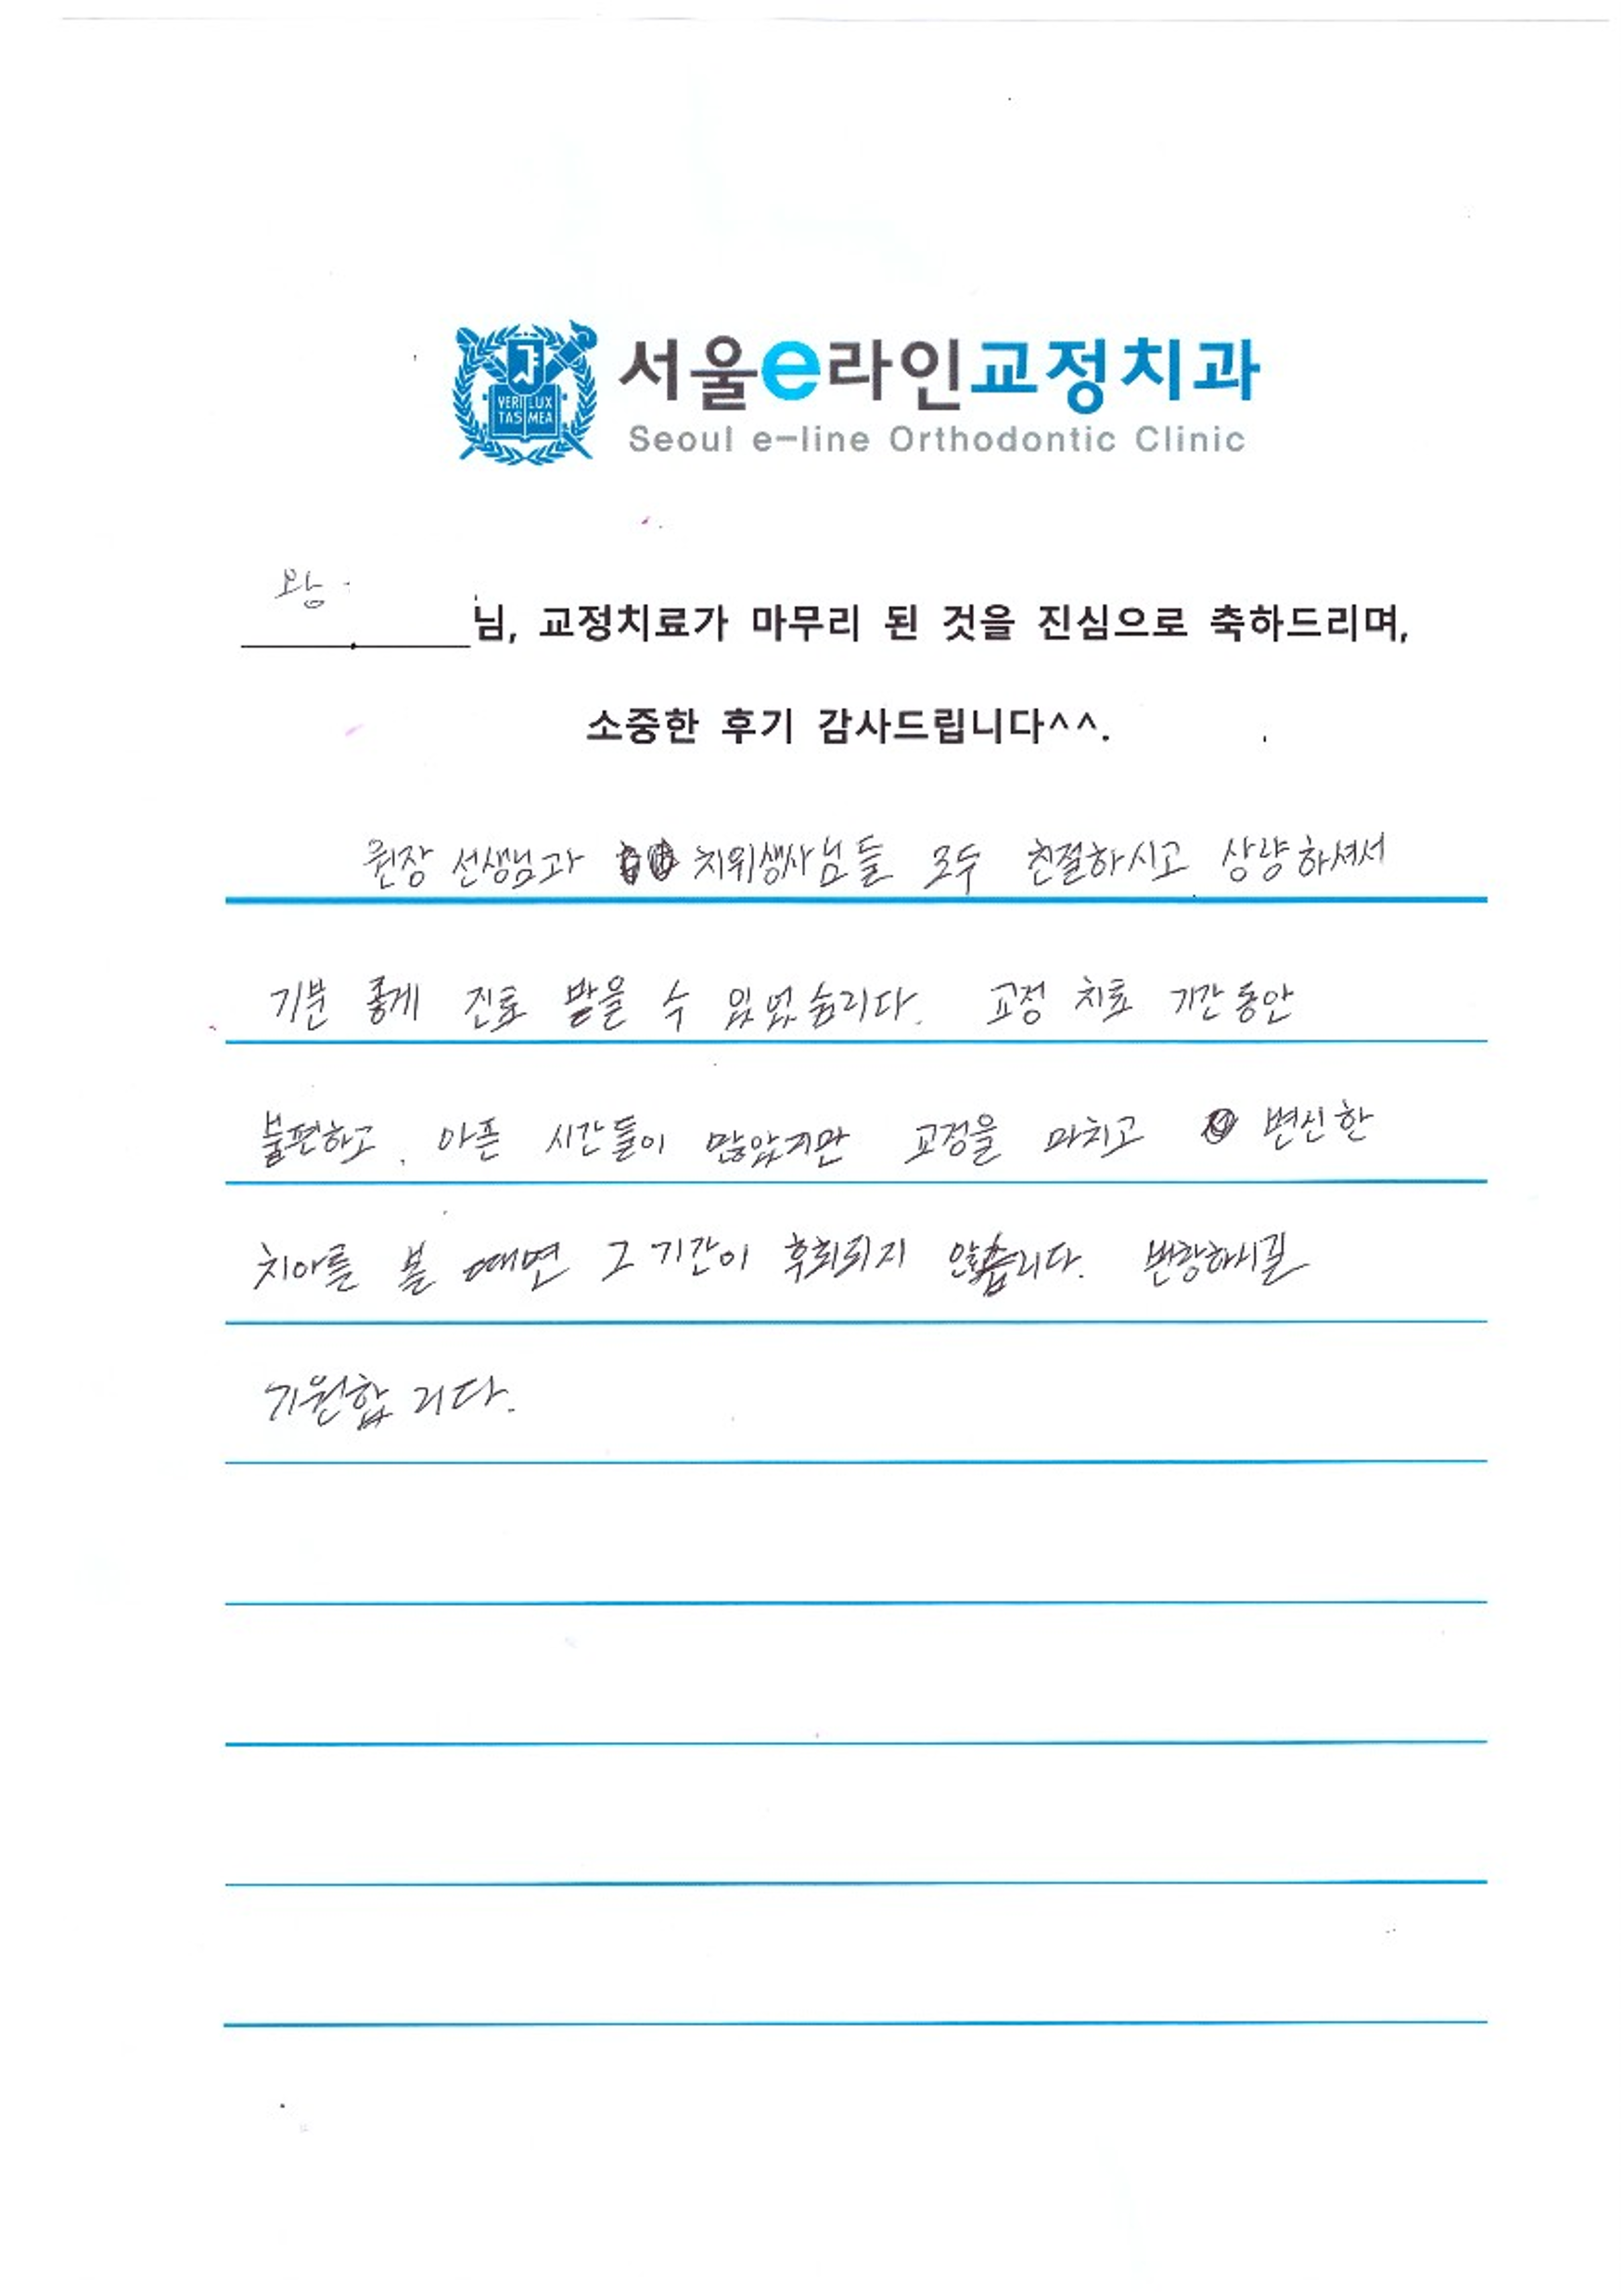 VERI LUX
TAS MEA
서울e라인교정치과
Seoul e-line Orthodontic Clinic
왕
님, 교정치료가 마무리 된 것을 진심으로 축하드리며,
소중한 후기 감사드립니다^^.
원장 선생님과 치위생사님들 모두 친절하시고 상량하셔서
기분 좋게 진료 받을 수 있었습니다. 교정 치료 기간동안
불편하고, 아픈 시간들이 많았지만 교정을 마치고 변신한
치아를 볼 때면 그 기간이 후회되지 않습니다. 번창하시길
기원합니다.